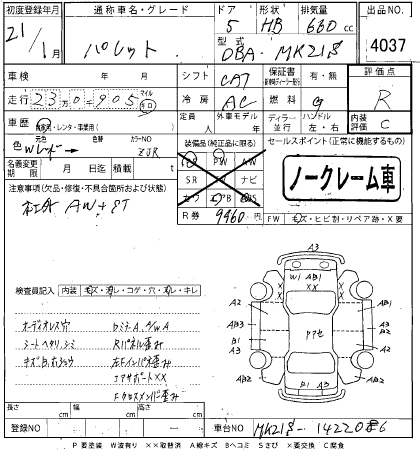 初度登録年月 通称車名・グレード ドア 形状 排気量 出品NO.
21/1月 パレット 5 HB 660cc 4037
型式 DBA-MK21S
車検 年 月 シフト CAT 保証書 有・無 評価点
走行 23万0千905 マイル キロ 冷房 AC 燃料 G R
車歴 自家用・レンタ・事業用 定員 人 外車モデル ディーラー 並行 ハンドル 左・右 内装評価 C
色 元色 Wレッド 色替 カラーNO ZJR 装備品(純正品に限る) セールスポイント(正常に機能するもの)
PS PW
名義変更期限 月 日迄 積載 t SR AW ナビ ノークレーム車
注意事項(欠品・修復・不具合箇所および状態) カワ エアB ABS
社外 AW+ST R券 9460円 FW キズ・ヒビ割・リペア跡・X要
検査員記入 内装 キズ・汚レ・コゲ・穴・スレ・キレ
オーディオレス穴
シートヘタリ、シミ Rパネル歪み
左Fインパネ歪み
コアサポートXX
Fクロスメンバ歪み
A3
W1 AB1
XX XX
A2 A2
AB3 AB3
A1 A1
AB2 AB2
B1 A3
A3
長さ cm 幅 cm 高さ cm
登録NO ー 車台NO MK21S-1422086
P要塗装 W波有り XX取替済 A線キズ Bヘコミ Sさび X要交換 C腐食